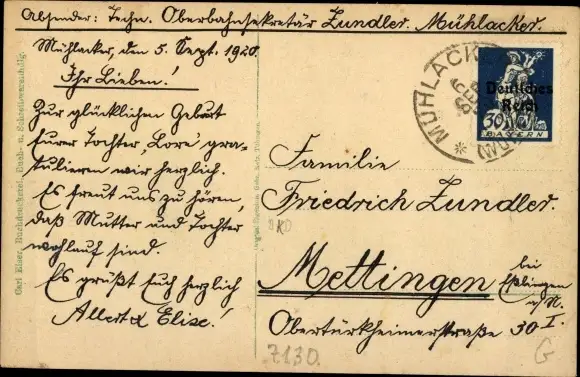 Absender: Techn. Oberbahnsekretär Zundler. Mühlacker.
Mühlacker, den 5. Sept. 1920.
Ihr Lieben!
Zur glücklichen Geburt
Eurer Tochter „Lore" gra-
tulieren wir herzlich.
Es freut uns zu hören,
daß Mutter und Tochter
wohlauf sind.
Es grüßt Euch herzlich
Albert & Elise!
Carl Elser, Buchdruckerei, Buch- u. Schreibwarenhdlg.
MÜHLACKER
Deutsches
Reich
30
BAYERN
Familie
Friedrich Zundler.
Mettingen bei
Eßlingen
a/N.
Obertürkheimerstraße 30 I.
7130.
G